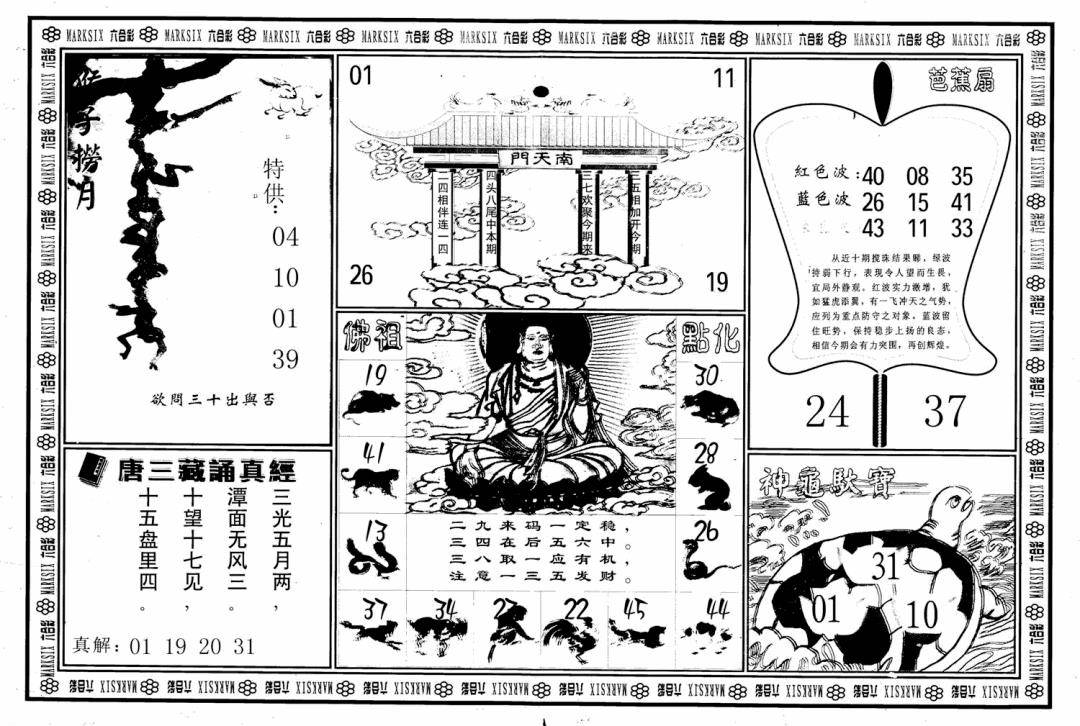 MARKSIX 六合彩 MARKSIX 六合彩 MARKSIX 六合彩 MARKSIX 六合彩 MARKSIX 六合彩 MARKSIX 六合彩 MARKSIX 六合彩 MARKSIX 六合彩 MARKSIX 六合彩 MARKSIX 六合彩
猴子撈月
特供:
04
10
01
39
欲問三十出與否
唐三藏誦真經
三光五月两,
潭面无风三。
十望十七见,
十五盘里四。
真解: 01 19 20 31
01
11
門天南
二四相伴连一四
四头八尾中本期
三七欢聚今期来
三五相加开今期
26
19
佛祖
點化
19
30
41
28
13
26
二九来码一定稳,
三四在后五六中。
三八取一应有机,
注意一三五发财。
37
34
23
22
45
44
芭蕉扇
紅色波: 40 08 35
藍色波 26 15 41
43 11 33
从近十期搅珠结果睇,绿波
持弱下行,表现令人望而生畏,
宜局外静观。红波实力激增,犹
如猛虎添翼,有一飞冲天之气势,
应列为重点防守之对象。蓝波留
住旺势,保持稳步上扬的良态,
相信今期会有力突围,再创辉煌。
24
37
神龜馱寶
31
01
10